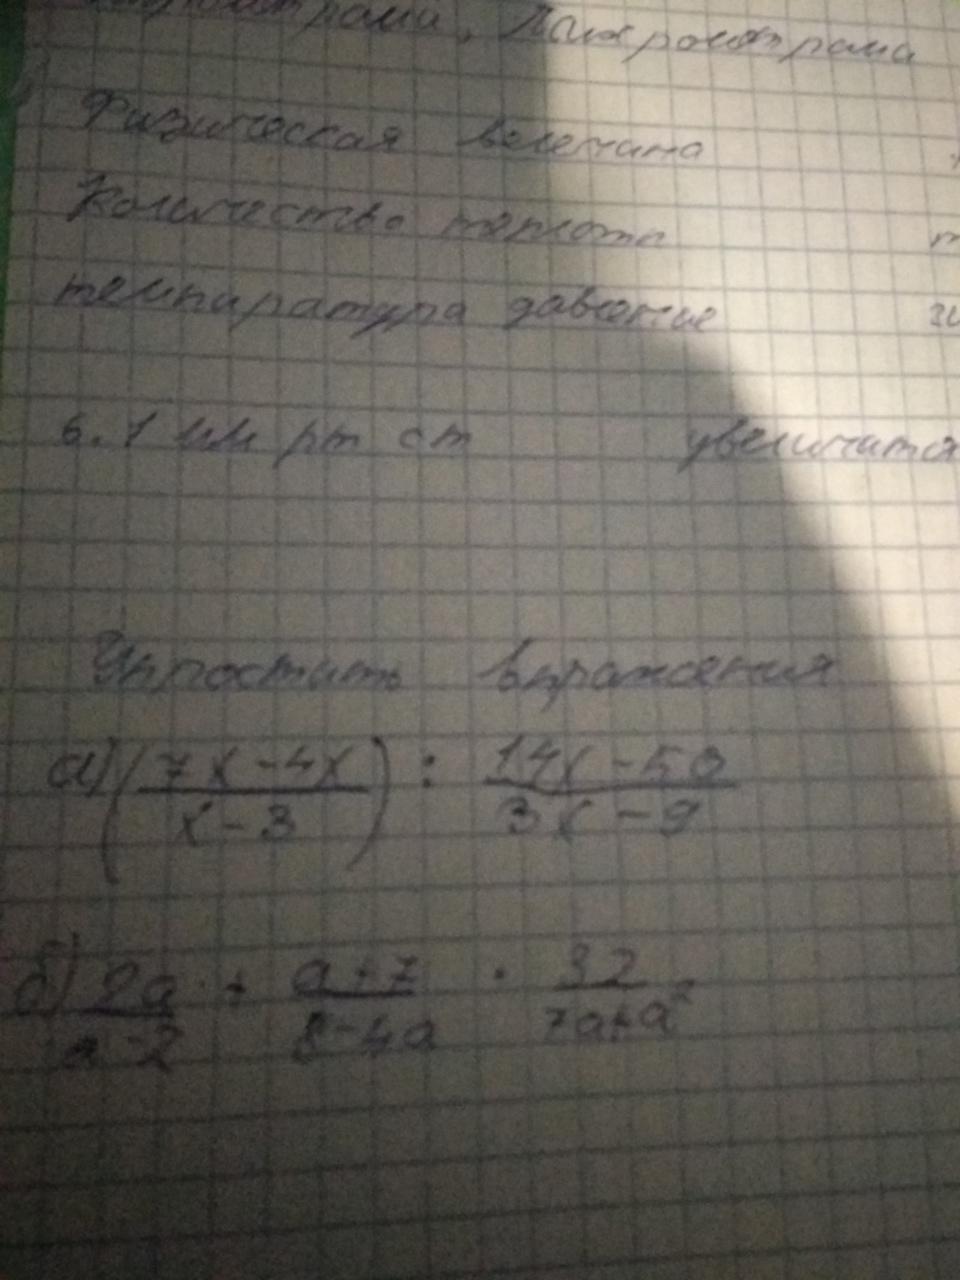 Физическая величина
Количество теплота
температура давление
6. 1 мм рт ст увеличится
Упростить выражения
а) (7x-4x / x-3) : 14x-50 / 3x-9
б) 2a / a-2 + a+7 / 8-4a · 32 / 7a+a²